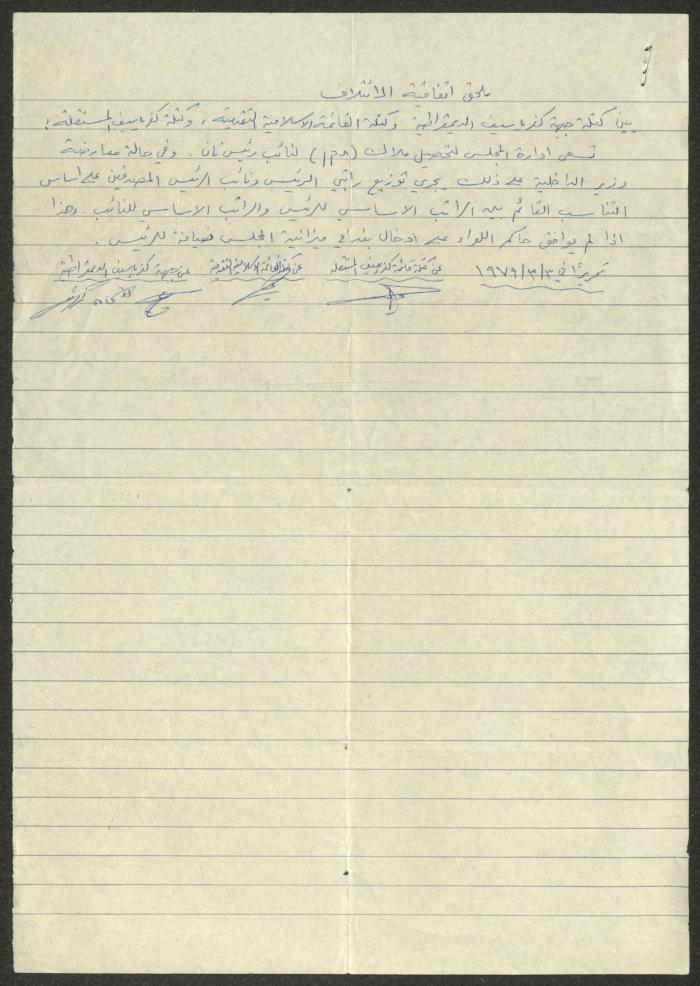 ملحق اتفاقية الائتلاف
بين كتلة جبهة كفر ياسيف الديمقراطية وكتلة القائمة الاسلامية التقدمية ، وكتلة كفر ياسيف المستقلة :
تسعى ادارة المجلس لتحصيل ملاك (תקן) لنائب رئيس ثان . وفي حالة معارضة
وزير الداخلية على ذلك يجري توزيع راتبي الرئيس ونائب الرئيس المصدقين على اساس
التناسب القائم بين الراتب الاساسي للرئيس والراتب الاساسي للنائب . وهذا
اذا لم يوافق حاكم اللواء على ادخال بند في ميزانية المجلس ضيافة للرئيس .
تحريرًا في ١٩٧٩/٣/٣ عن كتلة قائمة كفر ياسيف المستقلة عن كتلة القائمة الاسلامية التقدمية عن جبهة كفر ياسيف الديمقراطية